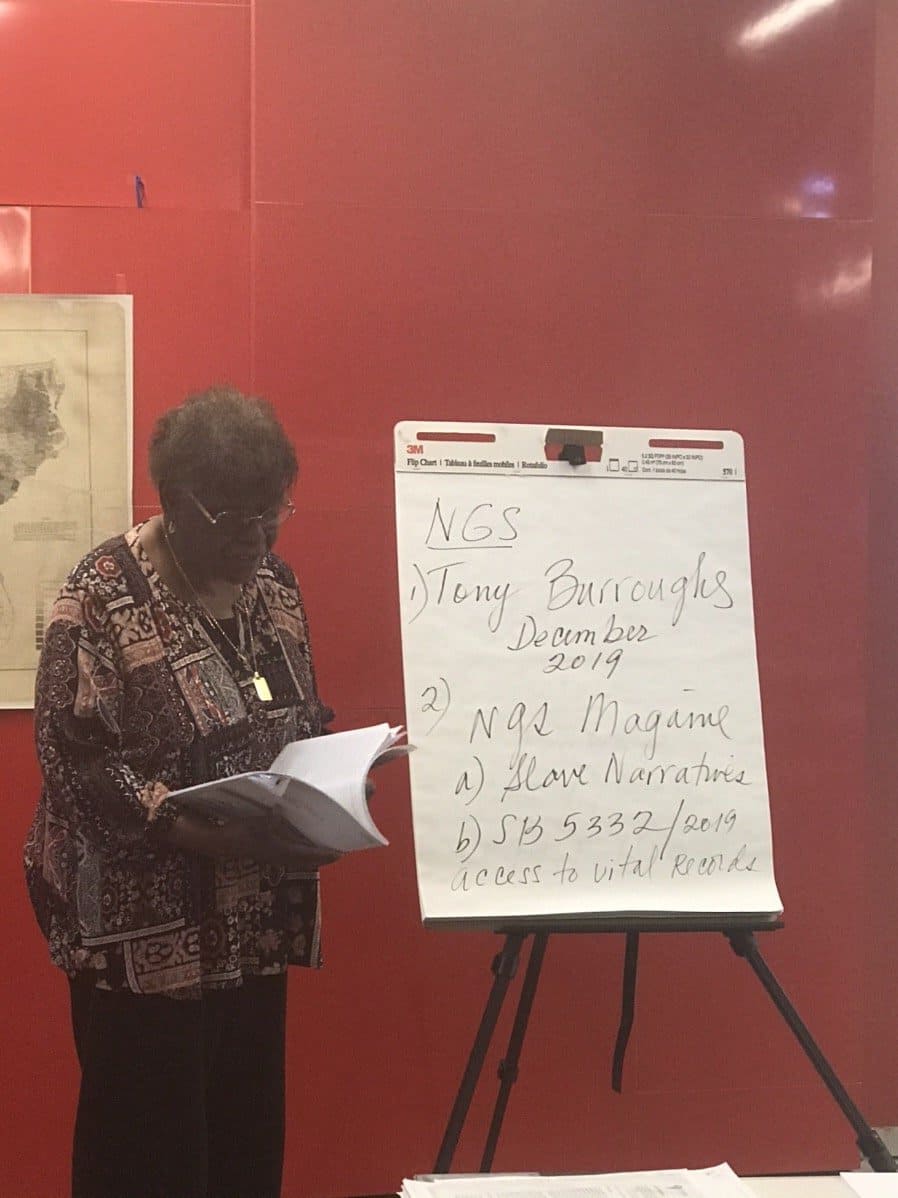 3M
Flip Chart | Tableau à feuilles mobiles | Rotafolio
570
NGS
1) Tony Burroughs
December
2019
2)
NGS Magazine
a) Slave Narratives
b) SB 5332/2019
access to vital Records